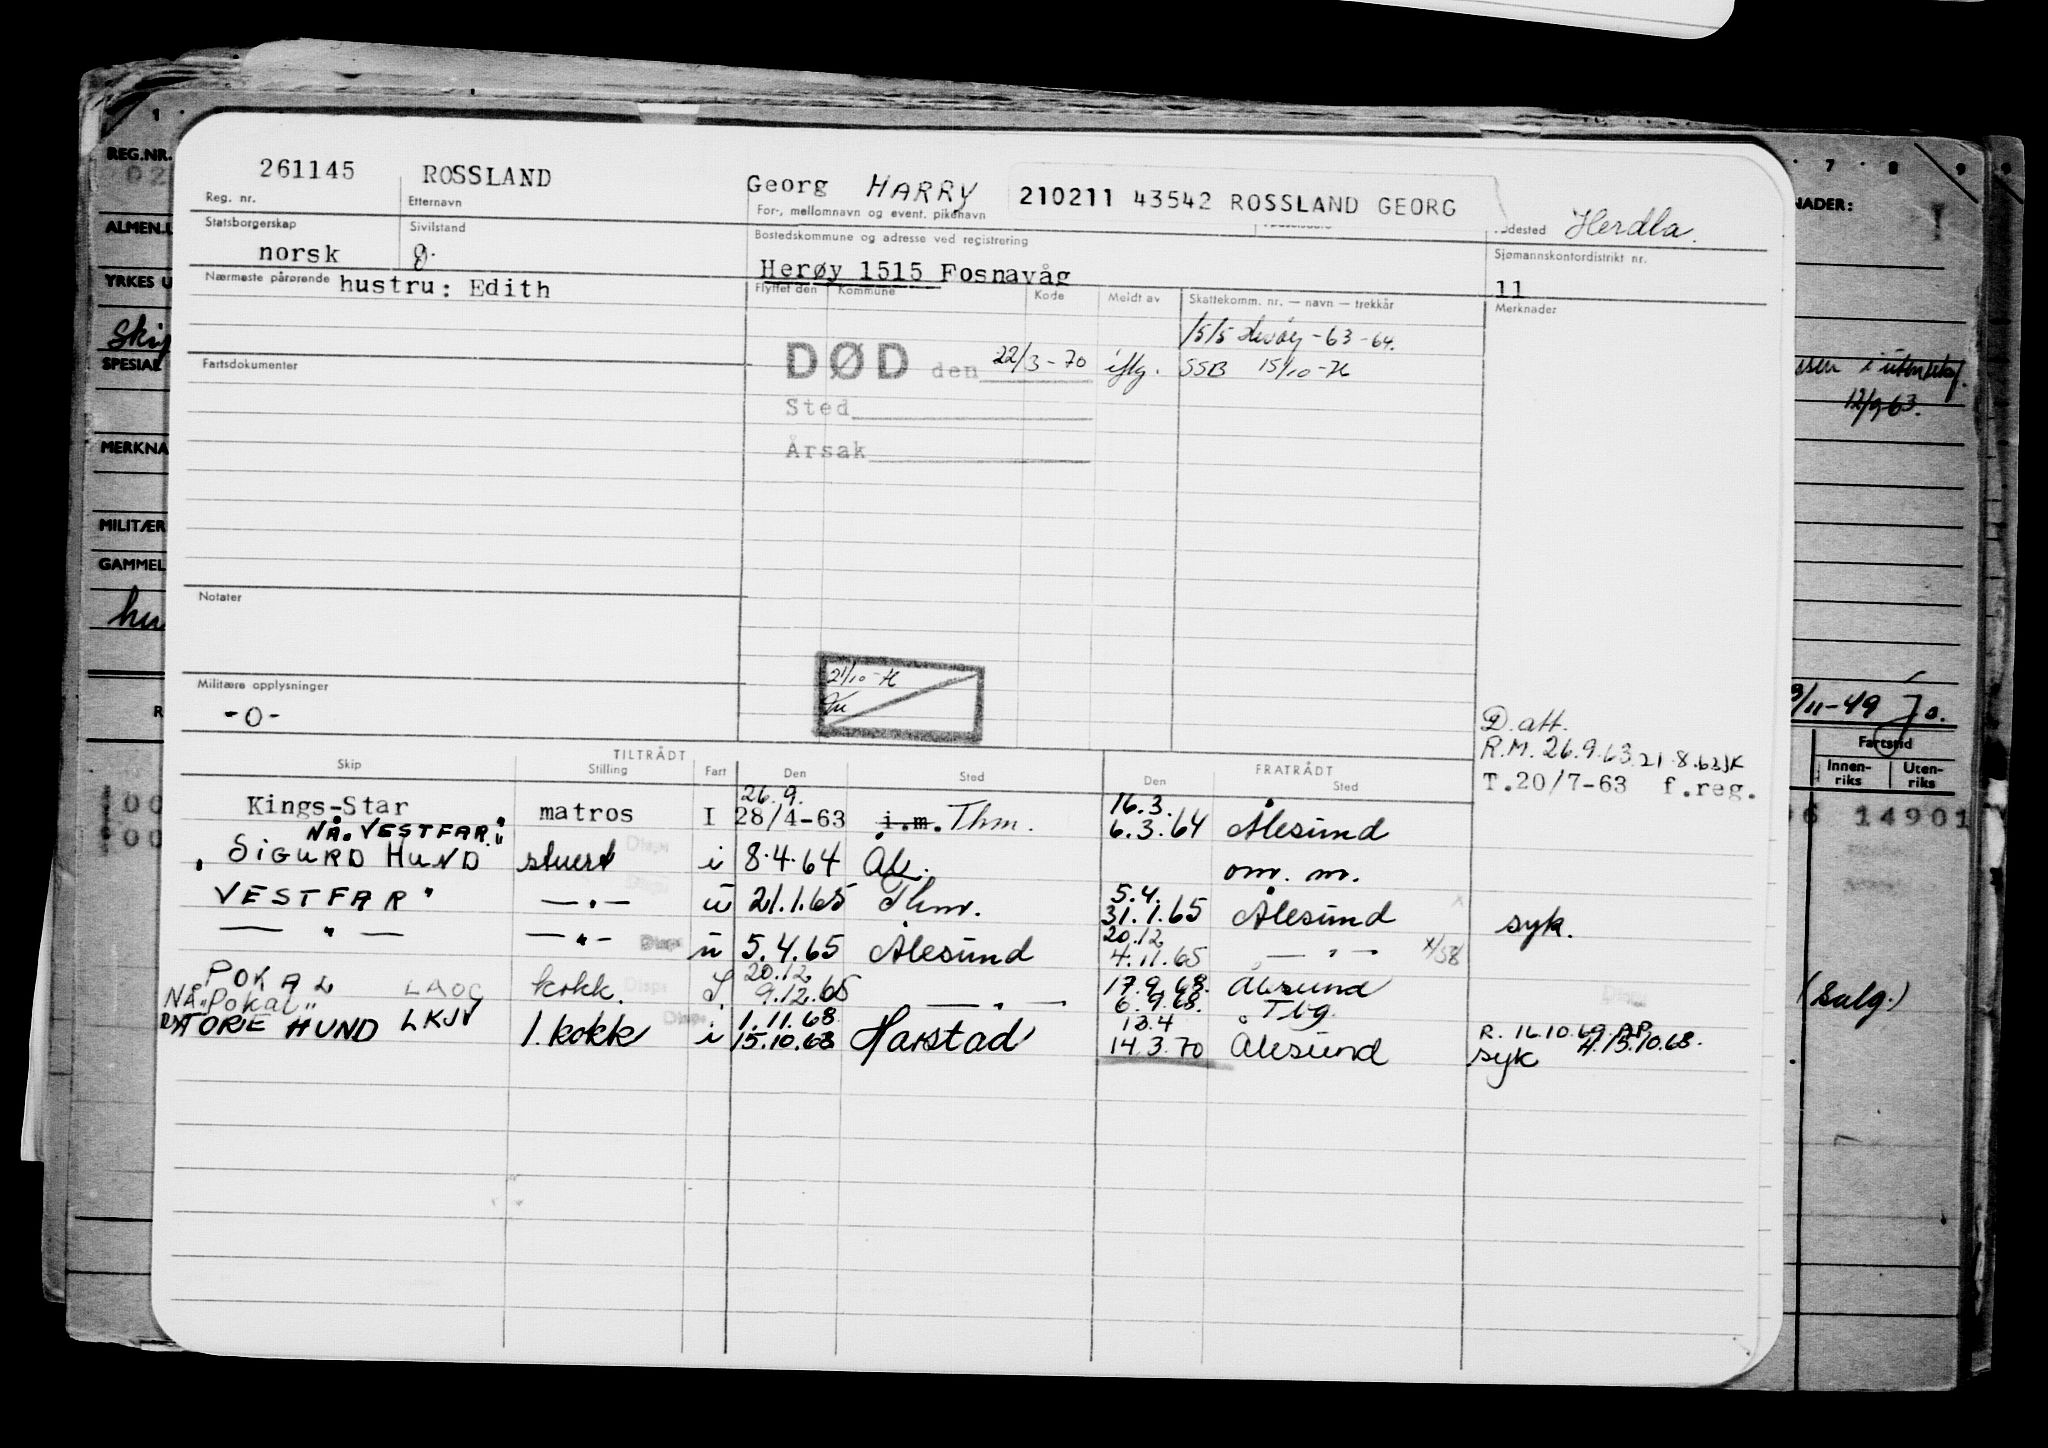 261145 ROSSLAND Georg HARRY 210211 43542 ROSSLAND GEORG Herdla.
Reg. nr. Etternavn For-, mellomnavn og event. pikenavn
Statsborgerskap Sivilstand Bostedskommune og adresse ved registrering Sjømannskontordistrikt nr.
norsk g. Herøy 1515 Fosnavåg 11
Nærmeste pårørende hustru: Edith Flyttet den Kommune Kode Meldt av Skattekomm. nr. — navn — trekkår Merknader
1515 Herøy - 63 - 64.
Fartsdokumenter DØD den 22/3-70 iflg. SSB 15/10-76
Sted
Årsak
Notater
21/10-76
Militære opplysninger
-0-
D. att.
R.M. 26.9.63 21.8.63
T.20/7-63 f.reg.
TILTRÅDT FRATRÅDT
Skip Stilling Fart Den Sted Den Sted
26.9. 16.3.
Kings-Star matros I 28/4-63 i.m. Thm. 6.3.64 Ålesund
NÅ "VESTFAR"
SIGURD HUND stuert i 8.4.64 Ål. om. m.
5.4.
VESTFAR" — " — ü 21.1.65 Thm. 31.1.65 Ålesund syk.
20.12
— " — — " — ü 5.4.65 Ålesund 4.11.65 — " —
20.12 17.9.68.
POKAL LAOG kokk. 9.12.65 — " — 6.9.68. Ålesund
NÅ "Pokal" 1.11.68 13.4 Tbg.
TORE HUND LKJV 1. kokk i 15.10.68 Harstad 14.3.70 Ålesund syk
R. 16.10.69 A. 15.10.68.
REG.NR.
ALMEN.
YRKES U
SPESIAL
MERKNA
MILITÆR
GAMMEL
hu
1
7 8 9
NADER:
12/9 63.
/11-49 Jo.
Fartstid
Innen-riks Uten-riks
14901
(Salg.)